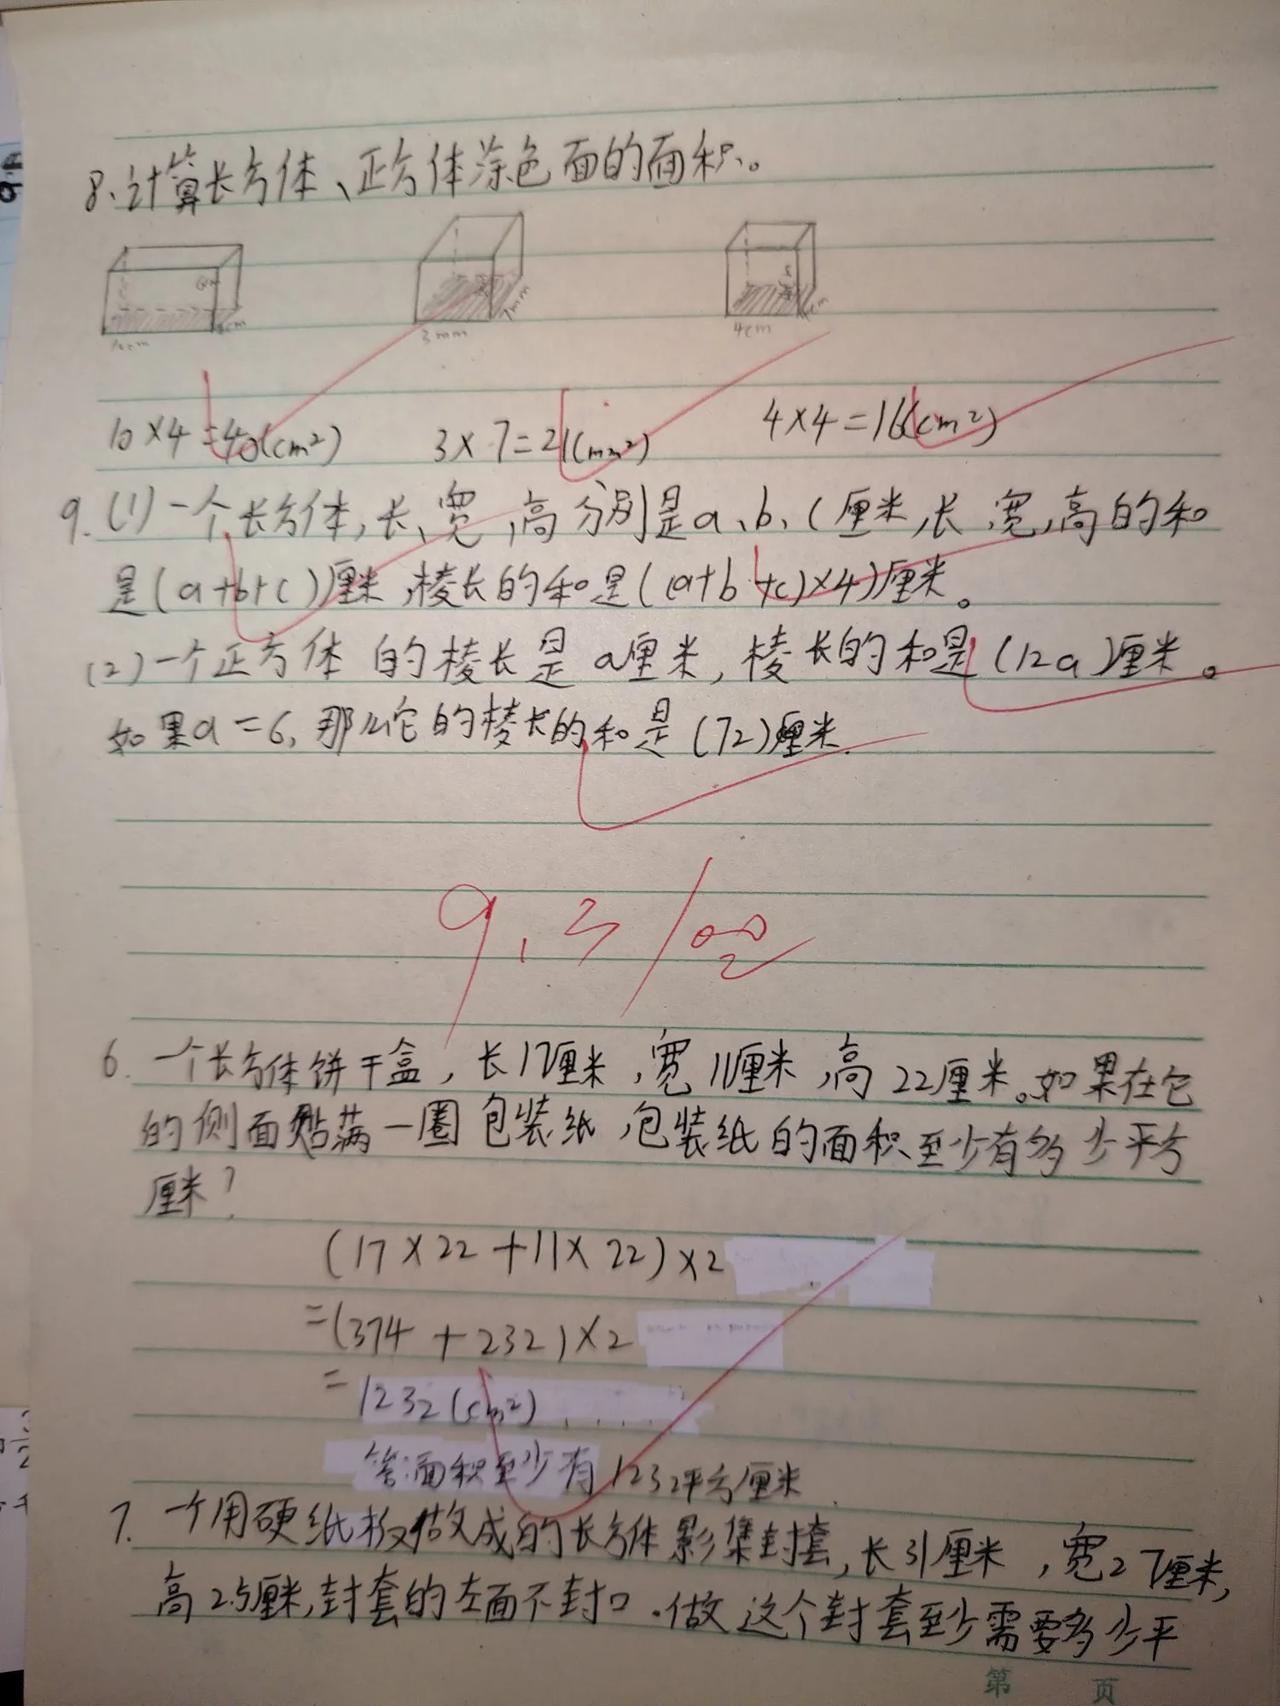 8、计算长方体、正方体涂色面的面积。
3mm
4cm
10×4=40(cm²) 3×7=21(mm²) 4×4=16(cm²)
9.(1)一个长方体,长、宽,高分别是a、b、c厘米,长、宽,高的和
是(a+b+c)厘米,棱长的和是((a+b+c)×4)厘米。
(2)一个正方体的棱长是a厘米,棱长的和是(12a)厘米。
如果a=6,那么它的棱长的和是(72)厘米.
9.3
6.一个长方体饼干盒,长17厘米,宽11厘米,高22厘米。如果在它
的侧面贴满一圈包装纸,包装纸的面积至少有多少平方
厘米?
(17×22+11×22)×2
=(374+232)×2
=1232(cm²)
答:面积至少有1232平方厘米
7.一个用硬纸板做成的长方体影集封套,长31厘米,宽27厘米,
高2.5厘米,封套的左面不封口.做这个封套至少需要多少平
第 页